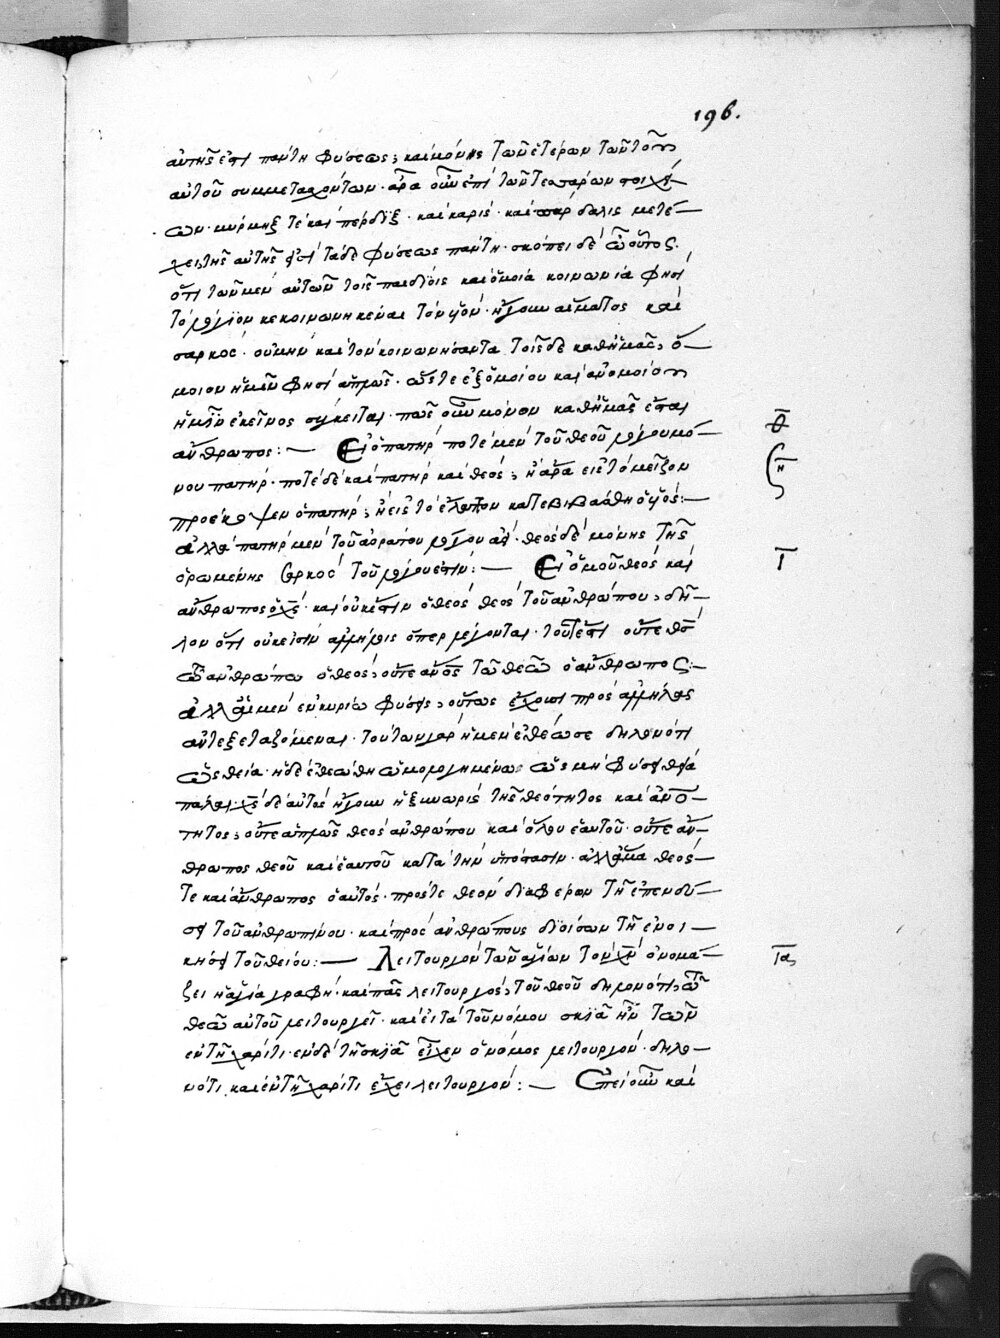 196.
αὐτῆς ἐστι πάντη φύσεως; καὶ μόνης τῶν ἑτέρων τῶν τον
αὐτοῦ συμμετασχόντων· ἆρα οὖν ἐπὶ τῶν τεσσάρων στοιχεί-
ων μύρμηξ τὲ καὶ πέρδιξ· καὶ καρὶς· καὶ πάρδαλις μετέ-
χει, τῆς αὐτῆς ἐστὶ τάδε φύσεως πάντη· σκόπει δὲ ὦ οὗτος
ὅτι τῶν μὲν αὐτῶν τοῖς παιδίοις καὶ ὅμοια κοινωνία φησὶ
τὸ λόγιον κεκοινωνηκέναι τὸν υἱόν· ἤγουν αἵματος καὶ
σαρκὸς· οὐ μὴν καὶ τὸν κοινωνήσαντα τοῖσδε καθ' ἡμᾶς, ὅ-
μοιον ἡμῖν φησὶ ἁπλῶς· ὥστε ἐξ ὁμοίου καὶ ἀνομοίου
ἡμῖν ἐκεῖνος σύγκειται· πῶς οὖν μόνον καθ' ἡμᾶς ἔσται
ἄνθρωπος:— Εἰ ὁ πατὴρ ποτὲ μὲν τοῦ θεοῦ λόγου μό-
νου πατήρ· ποτὲ δὲ καὶ πατὴρ καὶ θεός; ἢ ἄρα εἰς τὸ μεῖζον
προέκοψεν ὁ πατήρ; ἢ εἰς τὸ ἔλαττον κατεβιβάσθη ὁ υἱός:—
ἀλλὰ πατὴρ μὲν τοῦ ἀοράτου λόγου ἀεί· θεὸς δὲ μόνης τῆς
ὁρωμένης σαρκὸς τοῦ λόγου ἐστίν:— Εἰ ὁμοῦ θεὸς καὶ
ἄνθρωπος ὁ χς· καὶ οὐκ ἔστιν ὁ θεὸς θεὸς τοῦ ἀνθρώπου, δῆ-
λον ὅτι οὐκ εἰσὶν ἀλλήλοις ὅπερ λέγονται· τουτέστι οὔτε θς
τῶ ἀνθρώπω ὁ θεός, οὔτε ανος τῶ θεῶ ὁ ἄνθρωπος:—
ἀλλ' αἱ μὲν ἐν κυρίω φύσεις, οὕτως ἔχουσι πρὸς ἀλλήλας
ἀντεξεταζόμεναι· τούτων γὰρ ἡ μὲν ἐθέωσε δηλονότι
ὡς θεία· ἡ δὲ ἐθεώθη ὡμολογημένως ὡς μὴ φύσει θεία
πάλαι· χς δὲ αὐτὸς ἤγουν ἡ ξυνωρὶς τῆς θεότητος καὶ ανό-
τητος, οὔτε ἁπλῶς θεὸς ἀνθρώπου καὶ ὅλου ἑαυτοῦ· οὔτε ἄν-
θρωπος θεοῦ καὶ ἑαυτοῦ κατὰ τὴν ὑπόστασιν· ἀλλ' ἅμα θεός
τε καὶ ἄνθρωπος ὁ αὐτός· πρός τε θεὸν διαφέρων τῆ ἐπενδύ-
σει τοῦ ἀνθρωπίνου· καὶ πρὸς ἀνθρώπους διοίσων τῆ ἐνοι-
κήσει τοῦ θείου:— Λειτουργὸν τῶν ἁγίων τὸν χν ὀνομά-
ζει ἡ ἁγία γραφή· καὶ πᾶς λειτουργός, τοῦ θεοῦ δηλονότι, τῶ
θεῶ αὐτοῦ λειτουργεῖ· καὶ εἰ τὰ τοῦ νόμου σκιὰ ἦν τῶν
ἐν τῆ χάριτι· ἐν δὲ τῆ σκιᾶ εἶχεν ὁ νόμος λειτουργόν· δηλο-
νότι καὶ ἐν τῆ χάριτι ἔχει λειτουργόν:— Ἐπεὶ οὖν καὶ
θ
η
ι
ια